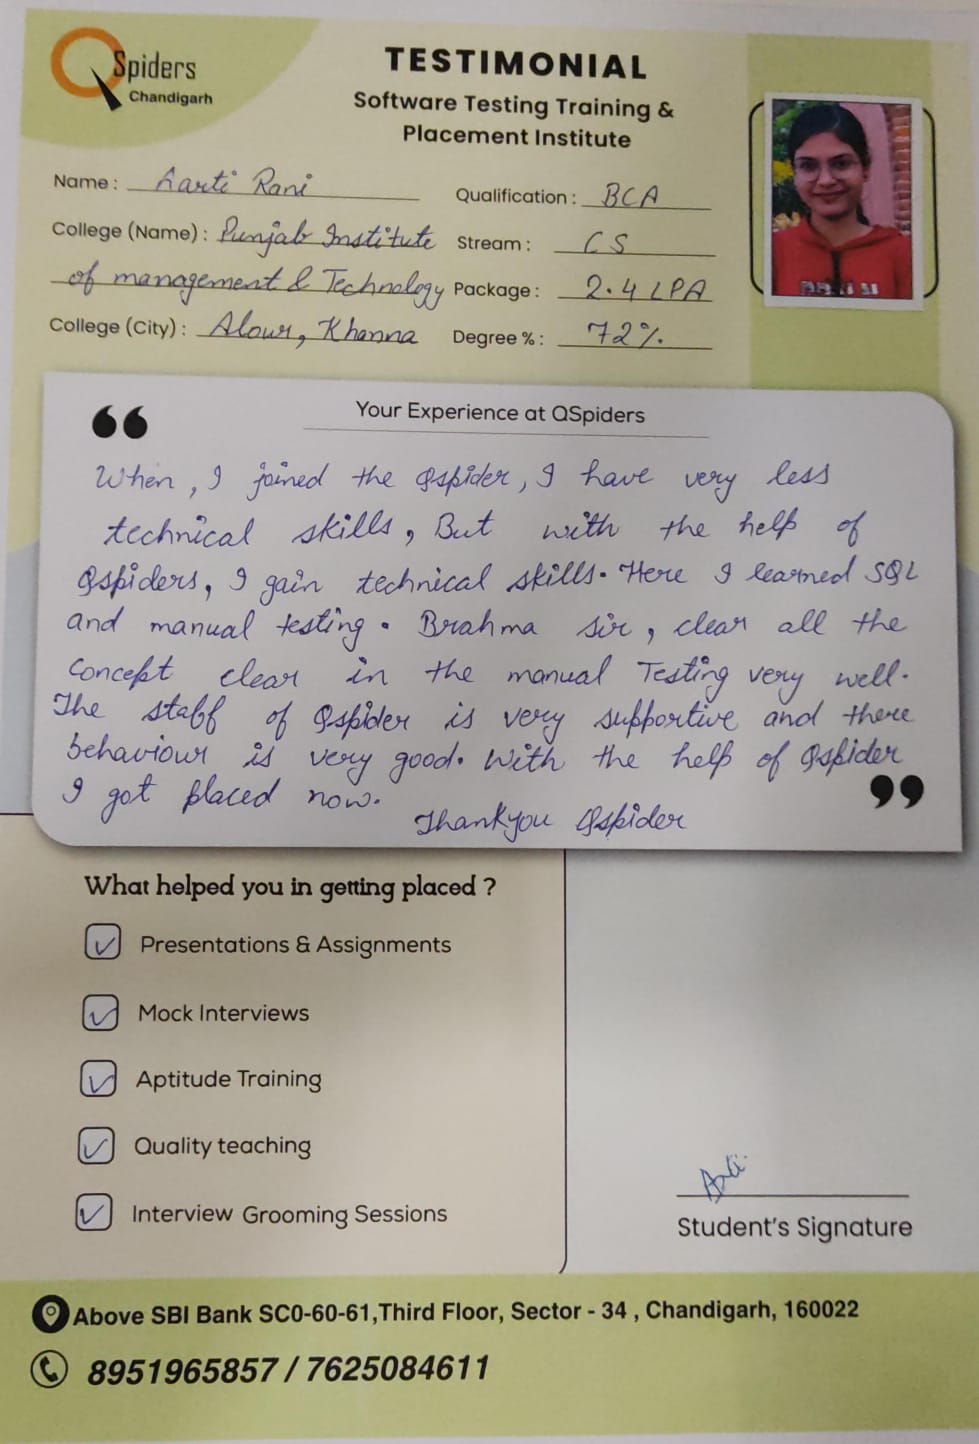 QSpiders
Chandigarh
TESTIMONIAL
Software Testing Training &
Placement Institute
Name : Aarti Rani
Qualification : BCA
College (Name) : Punjab Institute
Stream : CS
of management & Technology
Package : 2.4 LPA
College (City) : Alour, Khanna
Degree % : 72%
Your Experience at QSpiders
When, I joined the Qspider, I have very less
technical skills, But with the help of
Qspiders, I gain technical skills. Here I learned SQL
and manual testing. Brahma sir, clear all the
concept clear in the manual Testing very well.
The staff of Qspider is very supportive and there
behaviour is very good. With the help of Qspider
I got placed now.
Thankyou Qspider
What helped you in getting placed ?
Presentations & Assignments
Mock Interviews
Aptitude Training
Quality teaching
Interview Grooming Sessions
Student's Signature
Above SBI Bank SC0-60-61,Third Floor, Sector - 34 , Chandigarh, 160022
8951965857 / 7625084611